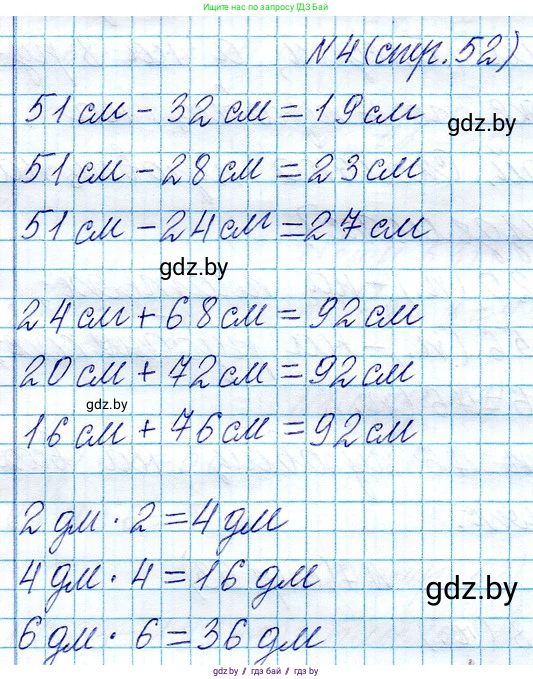 Ищите нас в телеграм: @gdz_by_bot | ГДЗ Бай
N4 (стр. 52)
51 см - 32 см = 19 см
gdz.by
51 см - 28 см = 23 см
51 см - 24 см = 27 см
gdz.by
24 см + 68 см = 92 см
20 см + 72 см = 92 см
gdz.by
16 см + 76 см = 92 см
2 дм · 2 = 4 дм
4 дм · 4 = 16 дм
gdz.by
6 дм · 6 = 36 дм
gdz.by / gdz.bai / гдз.бай